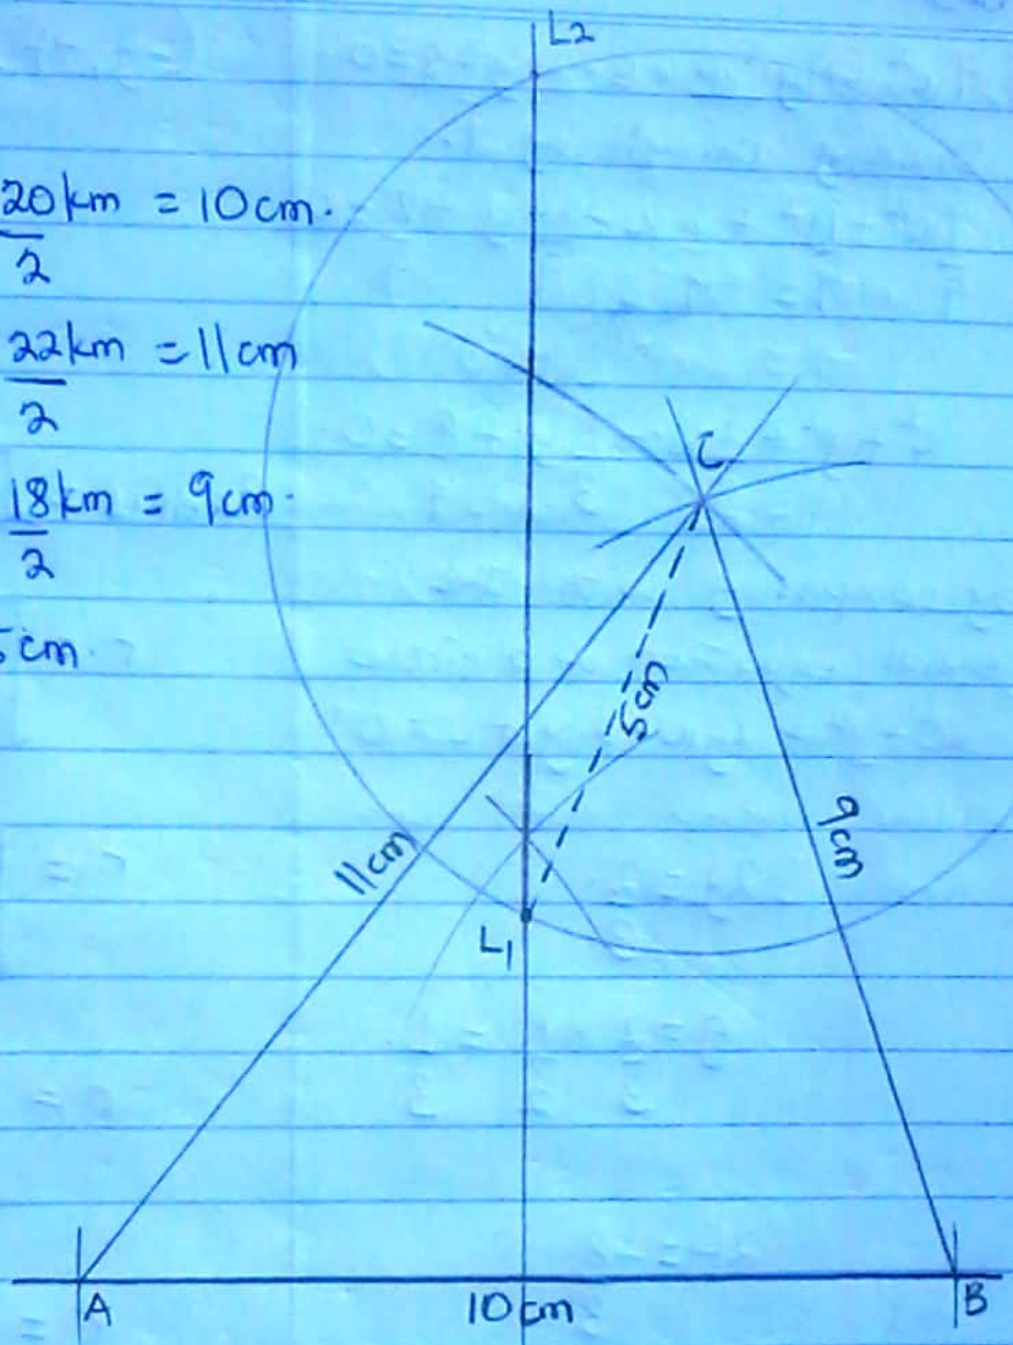 L2
20km = 10cm.
2
22km = 11cm
2
18km = 9cm.
2
5cm.
C
5cm
11cm
9cm
L1
A
10cm
B